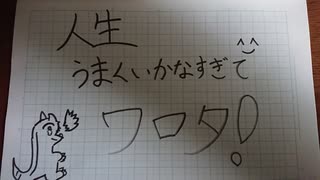 人生
うまくいかなすぎて^^
ワロタ!